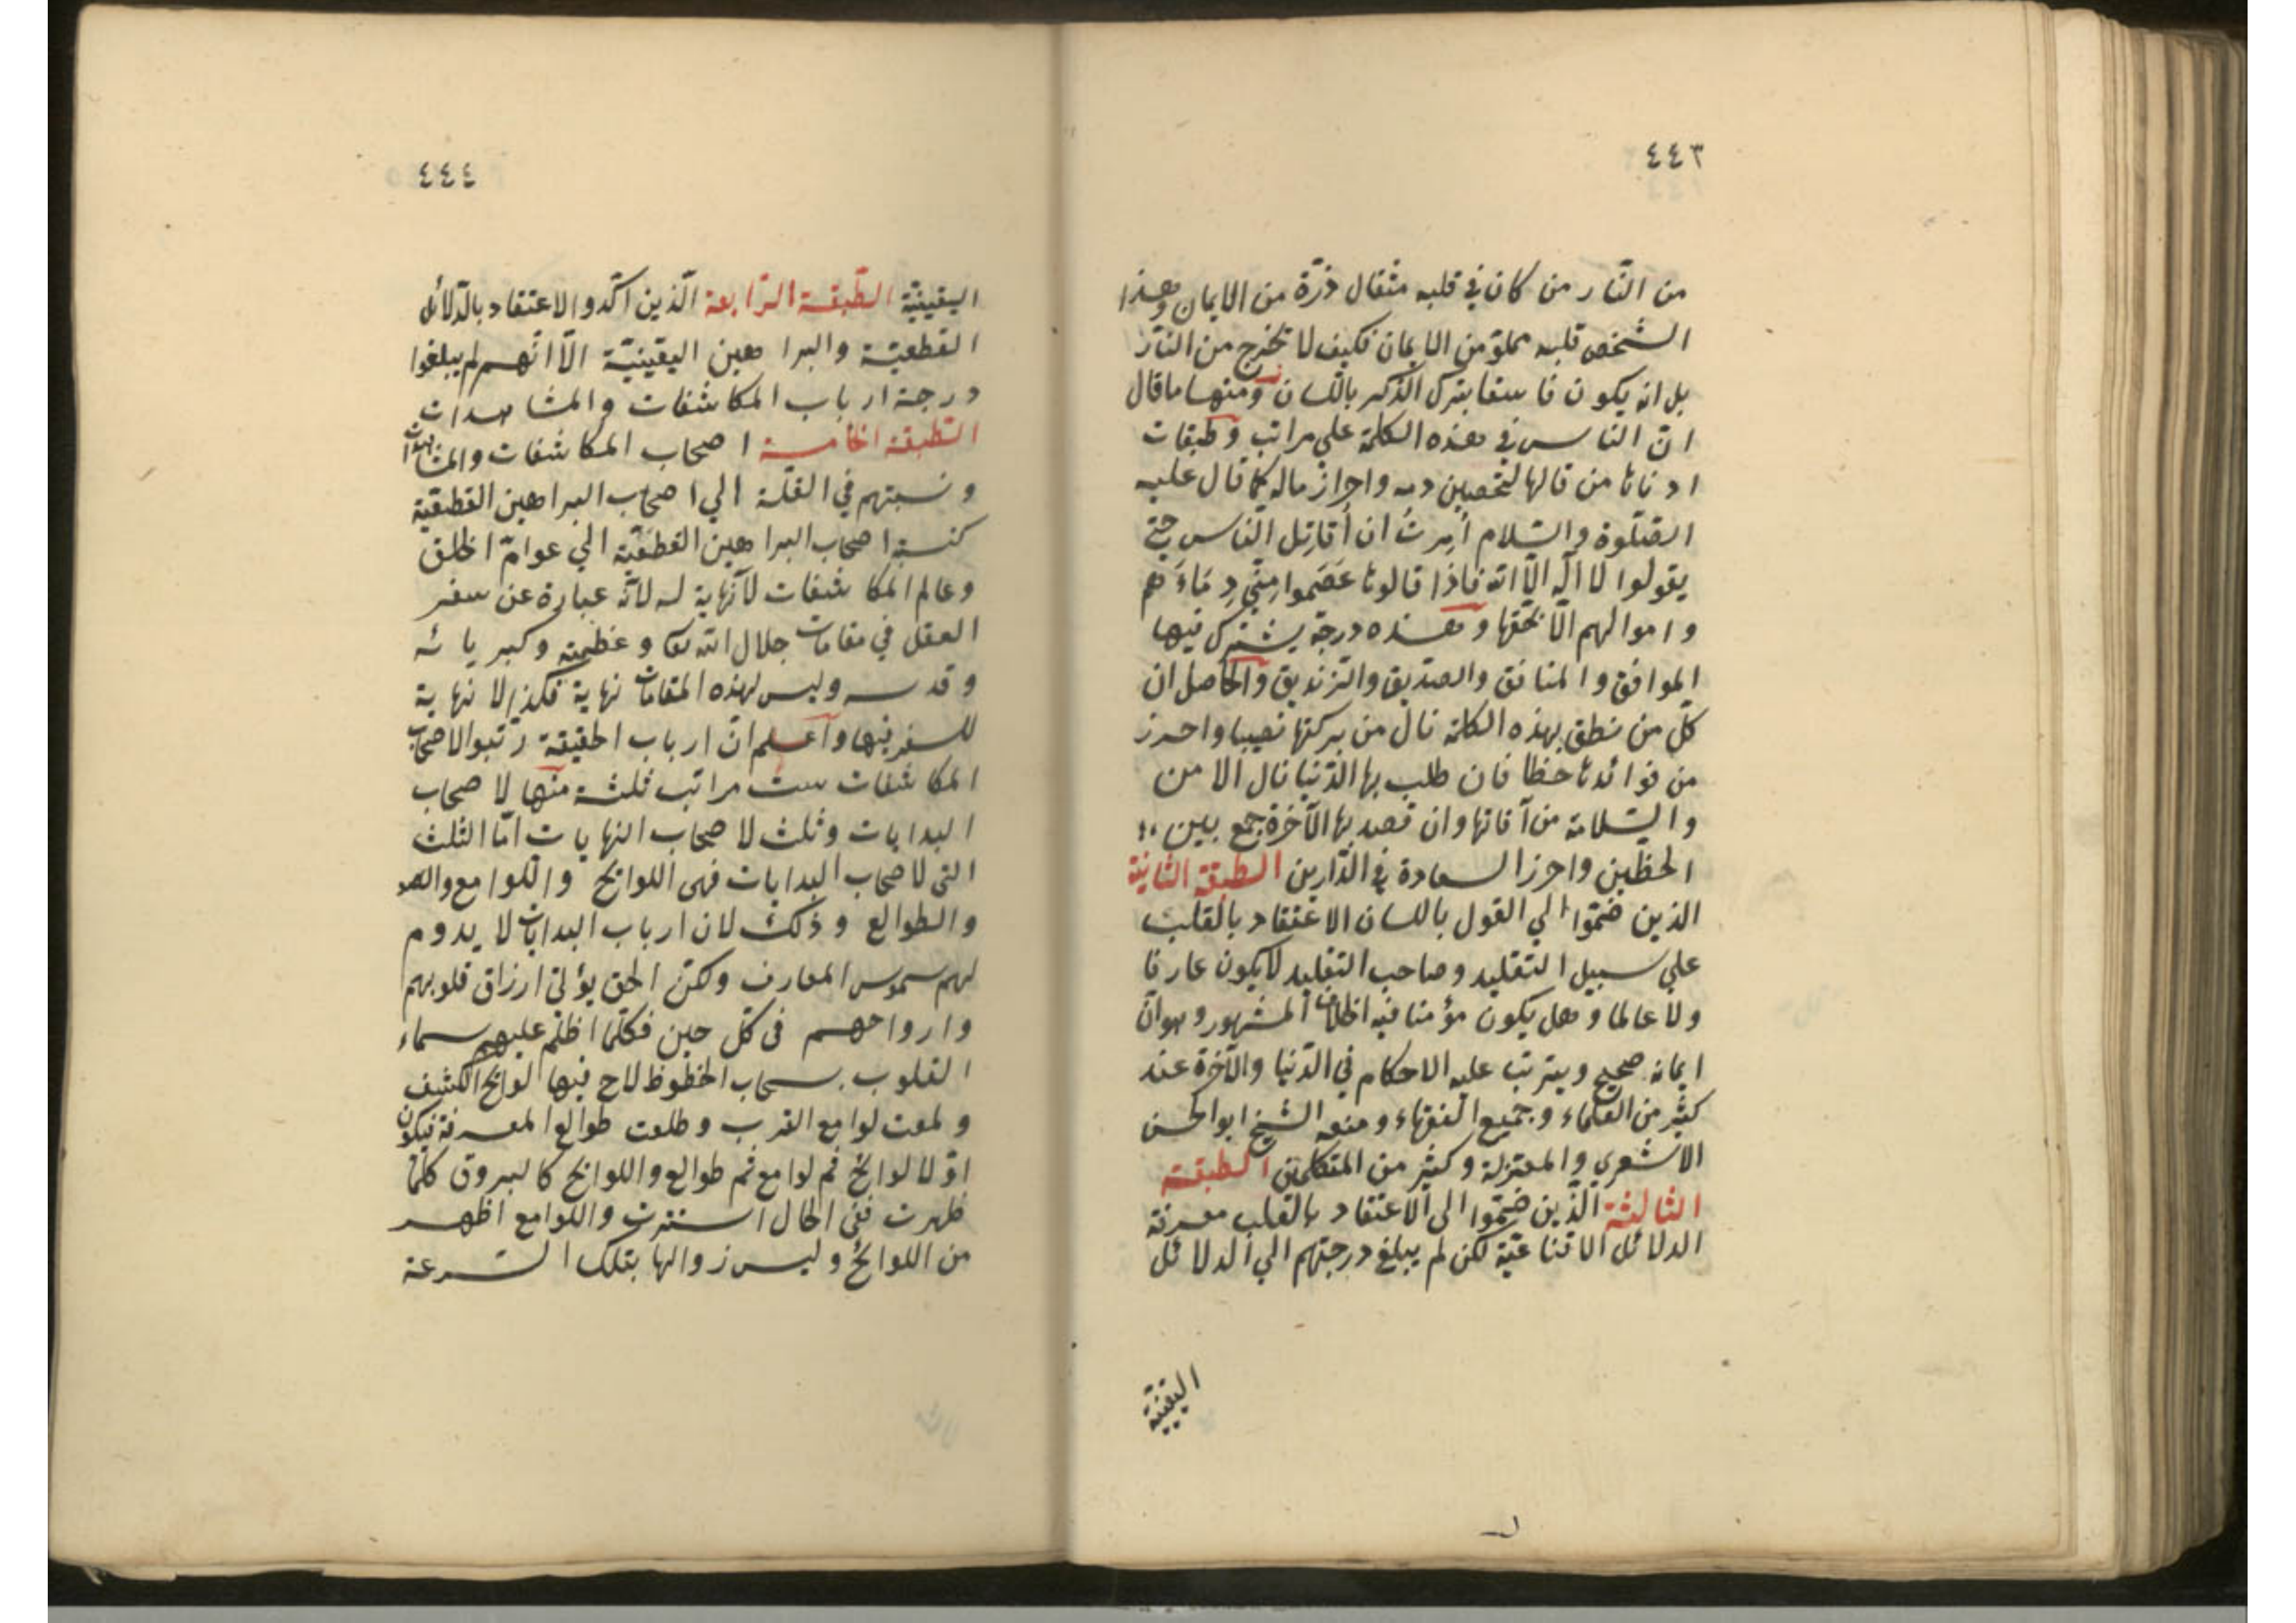 ٤٤٣
من النّار من كان في قلبه مثقال ذرّة من الايمان وهذا
الشخص قلبه مملوّ من الايمان فكيف لا تخرج من النّار
بل انه يكون فاسقا بترك الذّكر باللّسان ومنها ما قال
انّ النّاس في هذه الكلمة علي مراتب وطبقات
ادناها من قالها لتحصين دمه واحراز ماله كما قال عليه
الصّلوة والسّلام اُمِرتُ ان اُقاتِل النّاس حتّي
يقولوا لا اله الاّ الله فاذا قالوها عَصَموا مِنّي دِمَاءَهم
واموالهم الاّ بحقّها وهذه درجة يشترك فيها
الموافق والمنافق والصدّيق والزنديق والحاصل ان
كلّ من نطق بهذه الكلمة نال من بركتها نصيبا واحرز
من فوائدها حظا فان طلب بها الدّنيا نال الامن
والسّلامة من آفاتها وان قصد بها الآخرة جمع بين
الحظّين واحرز السعادة في الدّارين الطبقة الثانية
الذين ضمّوا الي القول باللسان الاعتقاد بالقلب
علي سبيل التقليد وصاحب التقليد لا يكون عارفا
ولا عالما وهل يكون مؤمنا فيه الخلاف المشهور وهو انّ
ايمانه صحيح ويترتب عليه الاحكام في الدّنيا والآخرة عند
كثير من العلماء وجميع الفقهاء ومنعه الشيخ ابو الحسن
الاشعري والمعتزلة وكثير من المتكلمين الطبقة
الثالثة الّذين ضمّوا الي الاعتقاد بالقلب معرفة
الدلائل الاقناعيّة لكن لم يبلغ درجتهم الي الدلائل
اليقينيّة
٤٤٤
اليقينيّة الطّبقة الرّابعة الّذين اكّدوا الاعتقاد بالدّلائل
القطعيّة والبراهين اليقينيّة الاّ انّهم لم يبلغوا
درجة ارباب المكاشفات والمشاهدات
الطّبقة الخامسة اصحاب المكاشفات والمشاهدات
ونسبتهم في القلّة الي اصحاب البراهين القطعيّة
كنسبة اصحاب البراهين القطعيّة الي عوامّ الخلق
وعالم المكاشفات لا نهاية له لانّه عبارة عن سفر
العقل في مقامات جلال الله تعا وعظمته وكبريائه
وقدسه وليس لهذه المقامات نهاية فكذا لا نهاية
للسفر فيها واعلم انّ ارباب الحقيقة رتبوا لاصحاب
المكاشفات ست مراتب ثلثة منها لاصحاب
البدايات وثلث لاصحاب النهايات امّا الثلث
التي لاصحاب البدايات فهي اللوايح واللوامع
والطوالع وذلك لان ارباب البدايات لا يدوم
لهم شموس المعارف ولكنّ الحق يؤتي ارزاق قلوبهم
وارواحهم في كلّ حين فكلّما اظلم عليهم سماء
القلوب بسحاب الحظوظ لاح فيها لوايح الكشف
ولمعت لوامع القرب وطلعت طوالع المعرفة فيكون
اوّلا لوايح ثم لوامع ثم طوالع واللوايح كالبروق كلّما
ظهرت ففي الحال استترت واللوامع اظهر
من اللوايح وليس زوالها بتلك السرعة